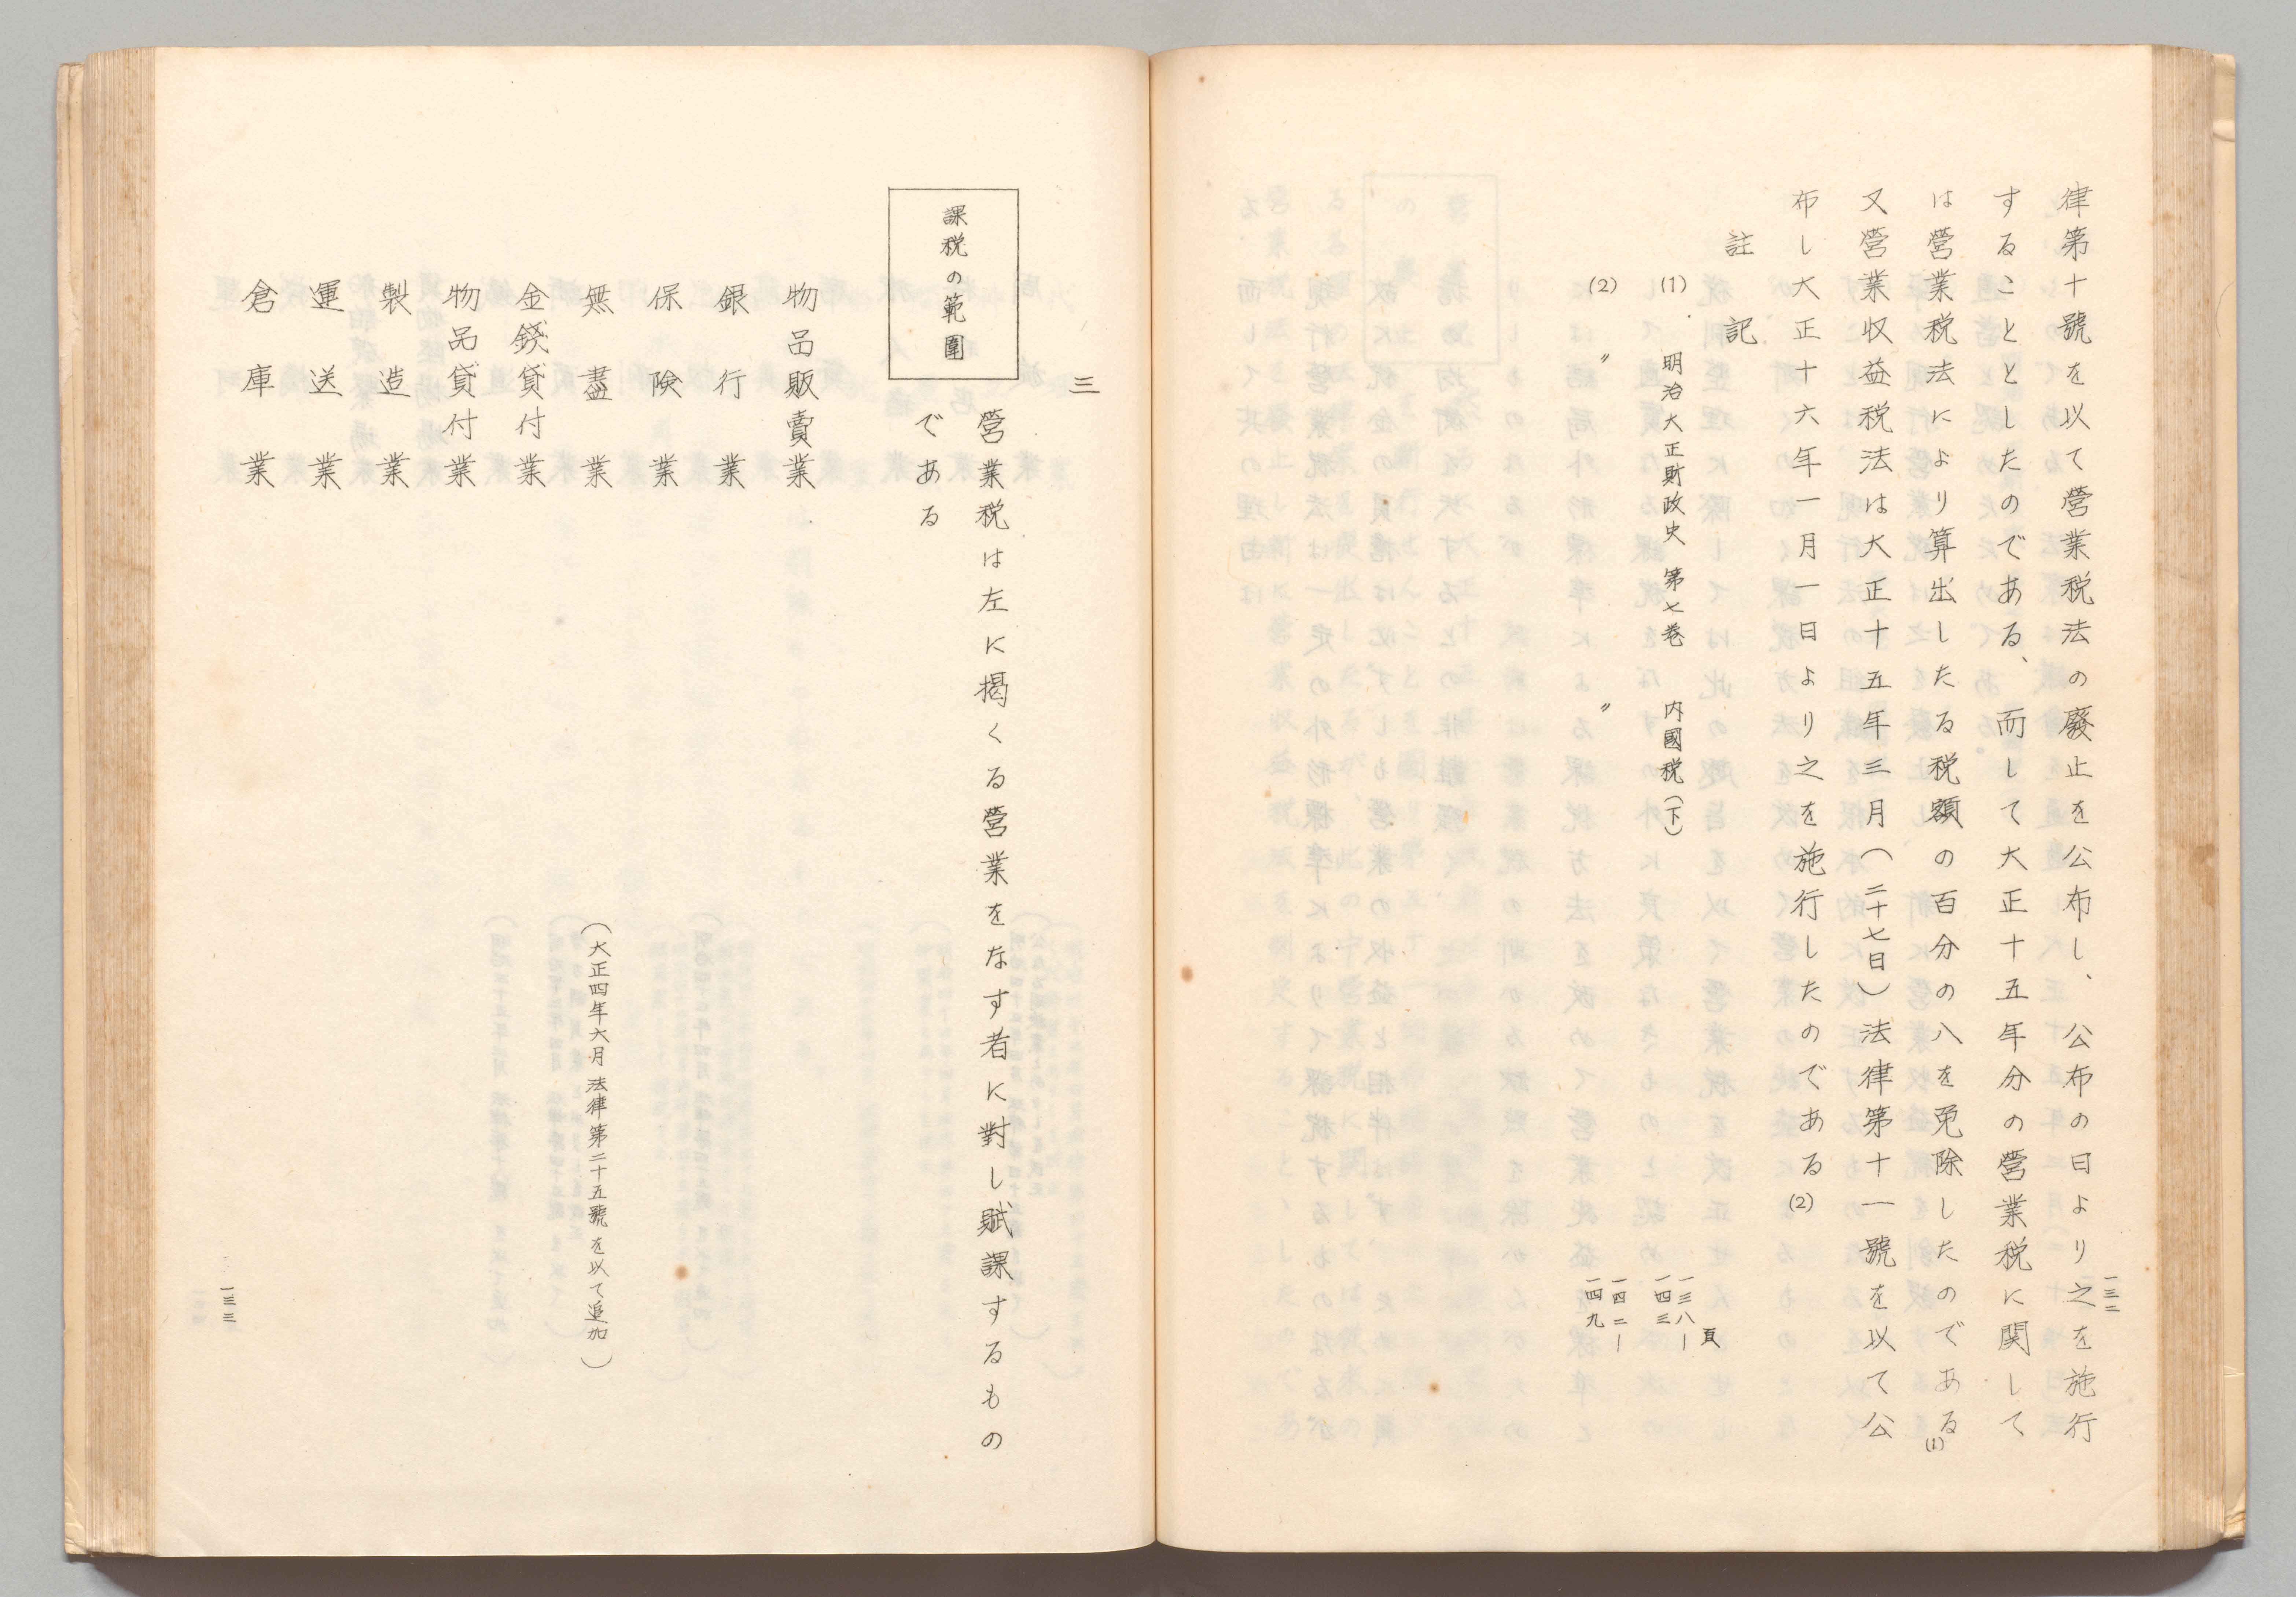 律第十號を以て營業税法の廢止を公布し、公布の日より之を施行
することとしたのである、而して大正十五年分の營業税に関して
は營業税法により算出したる税額の百分の八を免除したのである(1)
又營業収益税法は大正十五年三月(二十七日)法律第十一號を以て公
布し大正十六年一月一日より之を施行したのである(2)
註記
頁
(1) 明治大正財政史 第七巻 内國税(下) 一三八—一四三
(2) 〃 〃 一四二—一四九
一三二
三
課税の範圍
營業税は左に揭くる營業をなす者に對し賦課するもの
である
物品販賣業
銀行業
保険業
無盡業 (大正四年六月法律第二十五號を以て追加)
金錢貸付業
物品貸付業
製造業
運送業
倉庫業
一三三